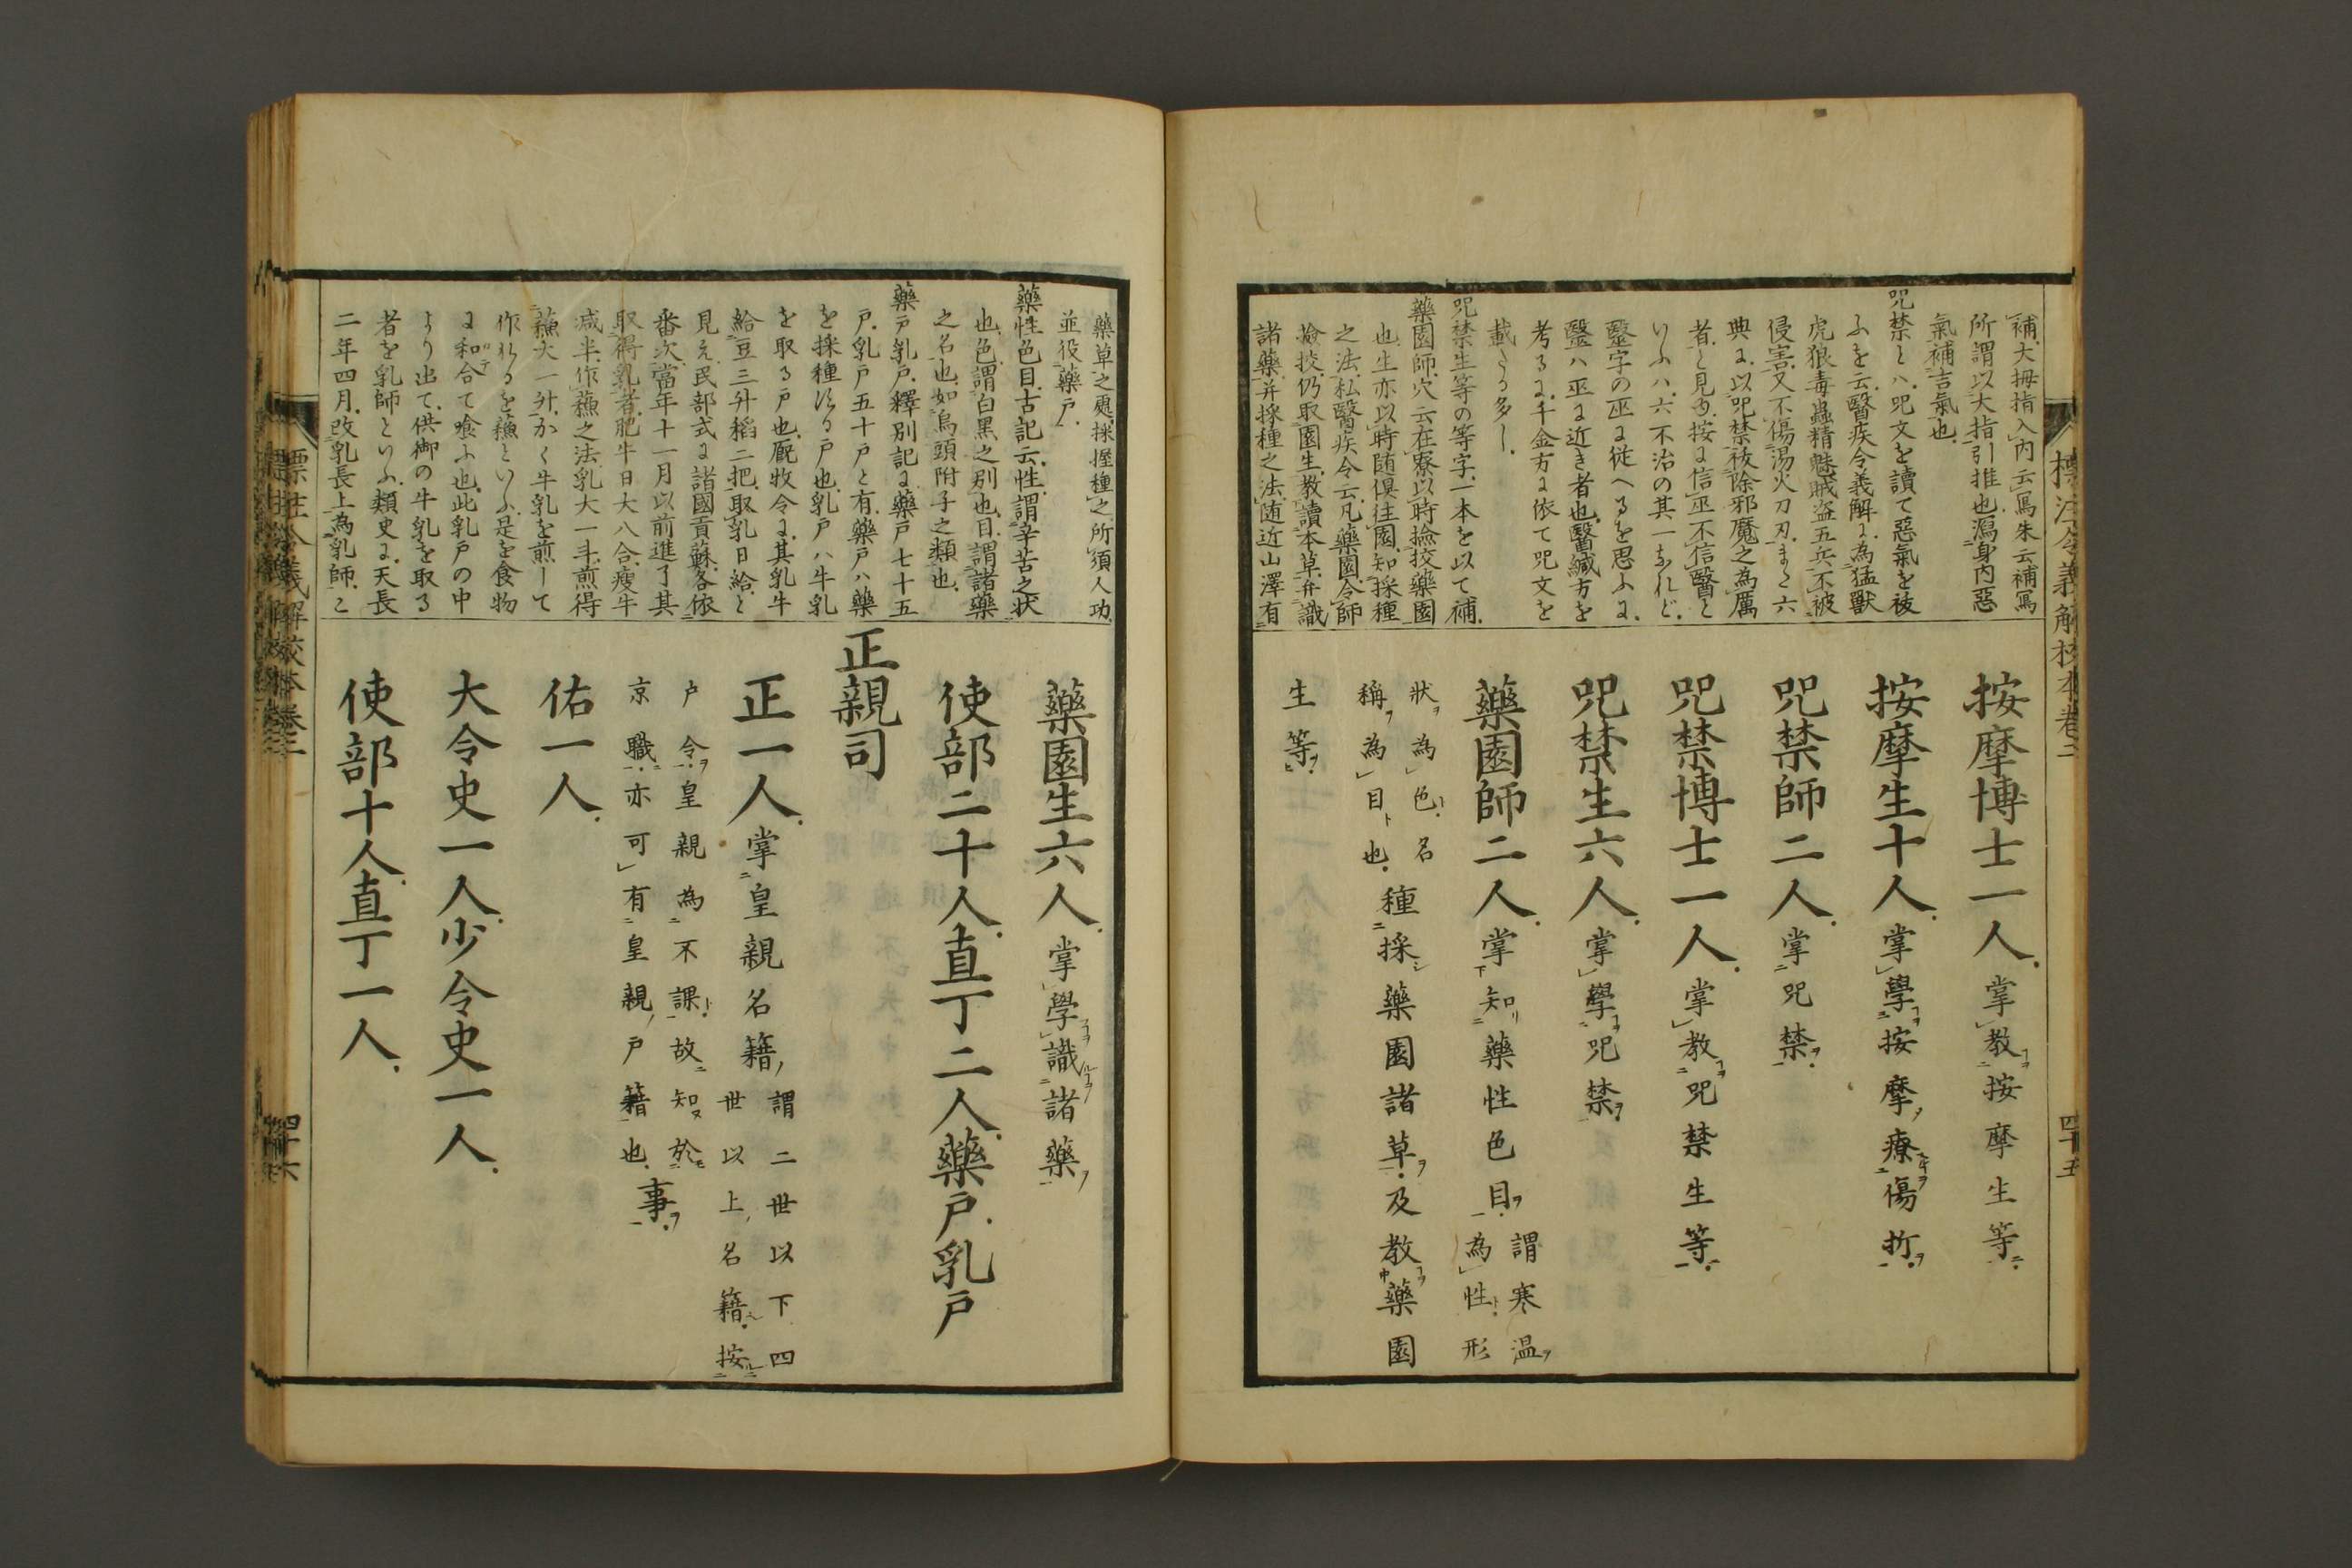 標注令義解校本卷二
四十五
補、大拇指入内云「寫朱云補寫
所謂以大指引推也、瀉身内惡
氣補吉氣也、
咒禁とハ、咒文を讀て惡氣を祓
ふを云、醫疾令義解に、為猛獸
虎狼毒蟲精魅賊盗五兵不被
侵害、又不傷湯火刀刃、また六
典に、以咒禁祓除邪魔之為厲
者と見ゆ、按に信巫不信醫と
いふハ、六不治の其一なれど、
毉字の巫に従へるを思ふに、
醫ハ巫に近き者也、醫緘方を
考るに、千金方に依て咒文を
載たる多し、
咒禁生等の等字、一本を以て補、
藥園師、穴云在寮以時撿挍藥園
也、生亦以時随倶往園、知採種
之法、私醫疾令云、凡藥園令師
撿挍、仍取園生、教讀本草、弁識
諸藥、并採種之法、随近山澤有
按摩博士一人、掌教按摩生等
按摩生十人、掌學按摩、療傷折
咒禁師二人、掌咒禁
咒禁博士一人、掌教咒禁生等
咒禁生六人、掌學咒禁
藥園師二人、掌知藥性色目、謂寒温為性、形
狀為色、名稱為目也、種採藥園諸草、及教藥園
生等
藥草之處採握種之所須人功
並役藥戸、
藥性色目、古記云、性、謂辛苦之状
也、色、謂白黒之別也、目、謂諸藥
之名也、如烏頭附子之類也、
藥戸乳戸、釋別記に藥戸七十五
戸、乳戸五十戸と有、藥戸ハ藥
を採種行る戸也、乳戸ハ牛乳
を取る戸也、厩牧令に、其乳牛
給豆三升稻二把、取乳日給と
見え、民部式に諸國貢蘇、各依
番次、當年十一月以前進了、其
取得乳者、肥牛日大八合、瘦牛
減半、作蘓之法、乳大一斗、煎得
蘓大一升、かく牛乳を煎して
作れるを蘓といふ、是を食物
に和合て喰ふ也、此乳戸の中
より出て、供御の牛乳を取る
者を乳師といふ、類史に、天長
二年四月、改乳長上為乳師、と
藥園生六人、掌學識諸藥
使部二十人、直丁二人、藥戸、乳戸
正親司
正一人、掌皇親名籍、謂二世以下四世以上、名籍、按
戸令、皇親為不課、故知於京職亦可有皇親戸籍也、事
佑一人、
大令史一人、少令史一人、
使部十人、直丁一人、
標注令義解校本卷二
四十六